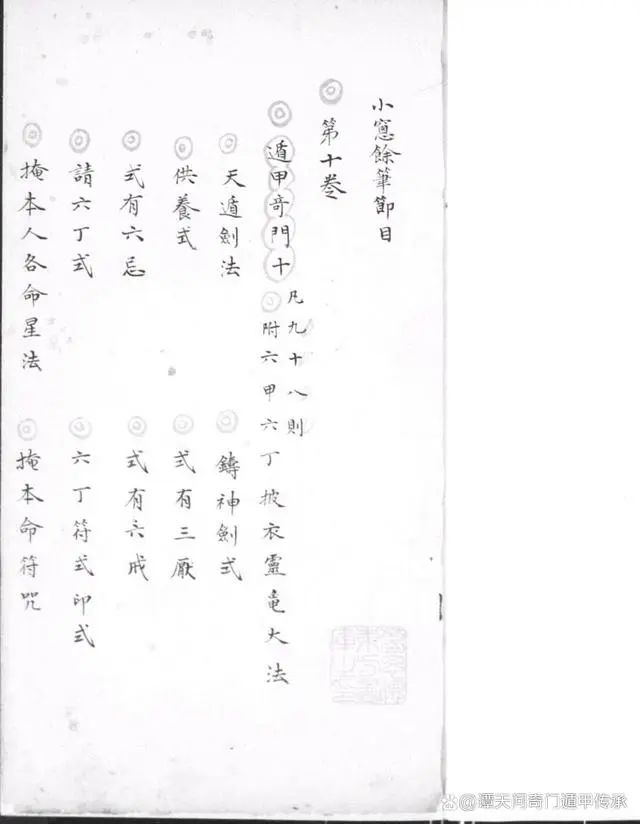 小窻餘筆節目
第十卷
遁甲奇門十
凡九十八則
附六甲六丁披衣靈竜大法
天遁劍法
鑄神劍式
供養式
式有三厭
式有六忌
式有六戒
請六丁式
六丁符式印式
掩本人各命星法
掩本命符咒
@潭天河奇门遁甲传承